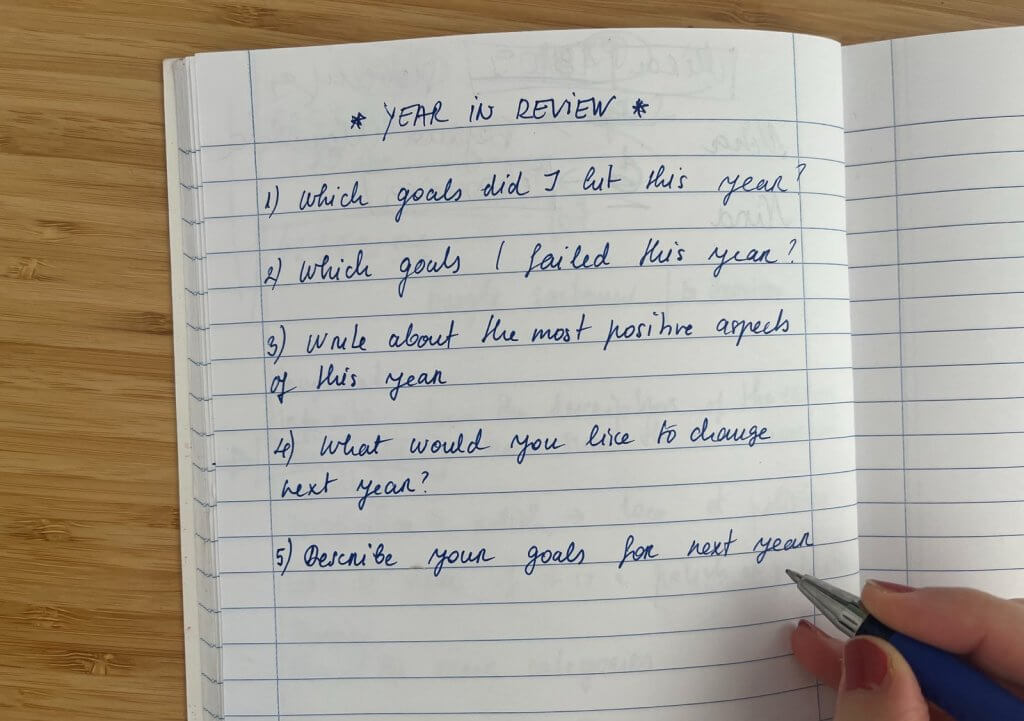 * YEAR IN REVIEW *
1) Which goals did I hit this year?
2) Which goals I failed this year?
3) Write about the most positive aspects
of this year
4) What would you like to change
next year?
5) Describe your goals for next year
Nina
Nina